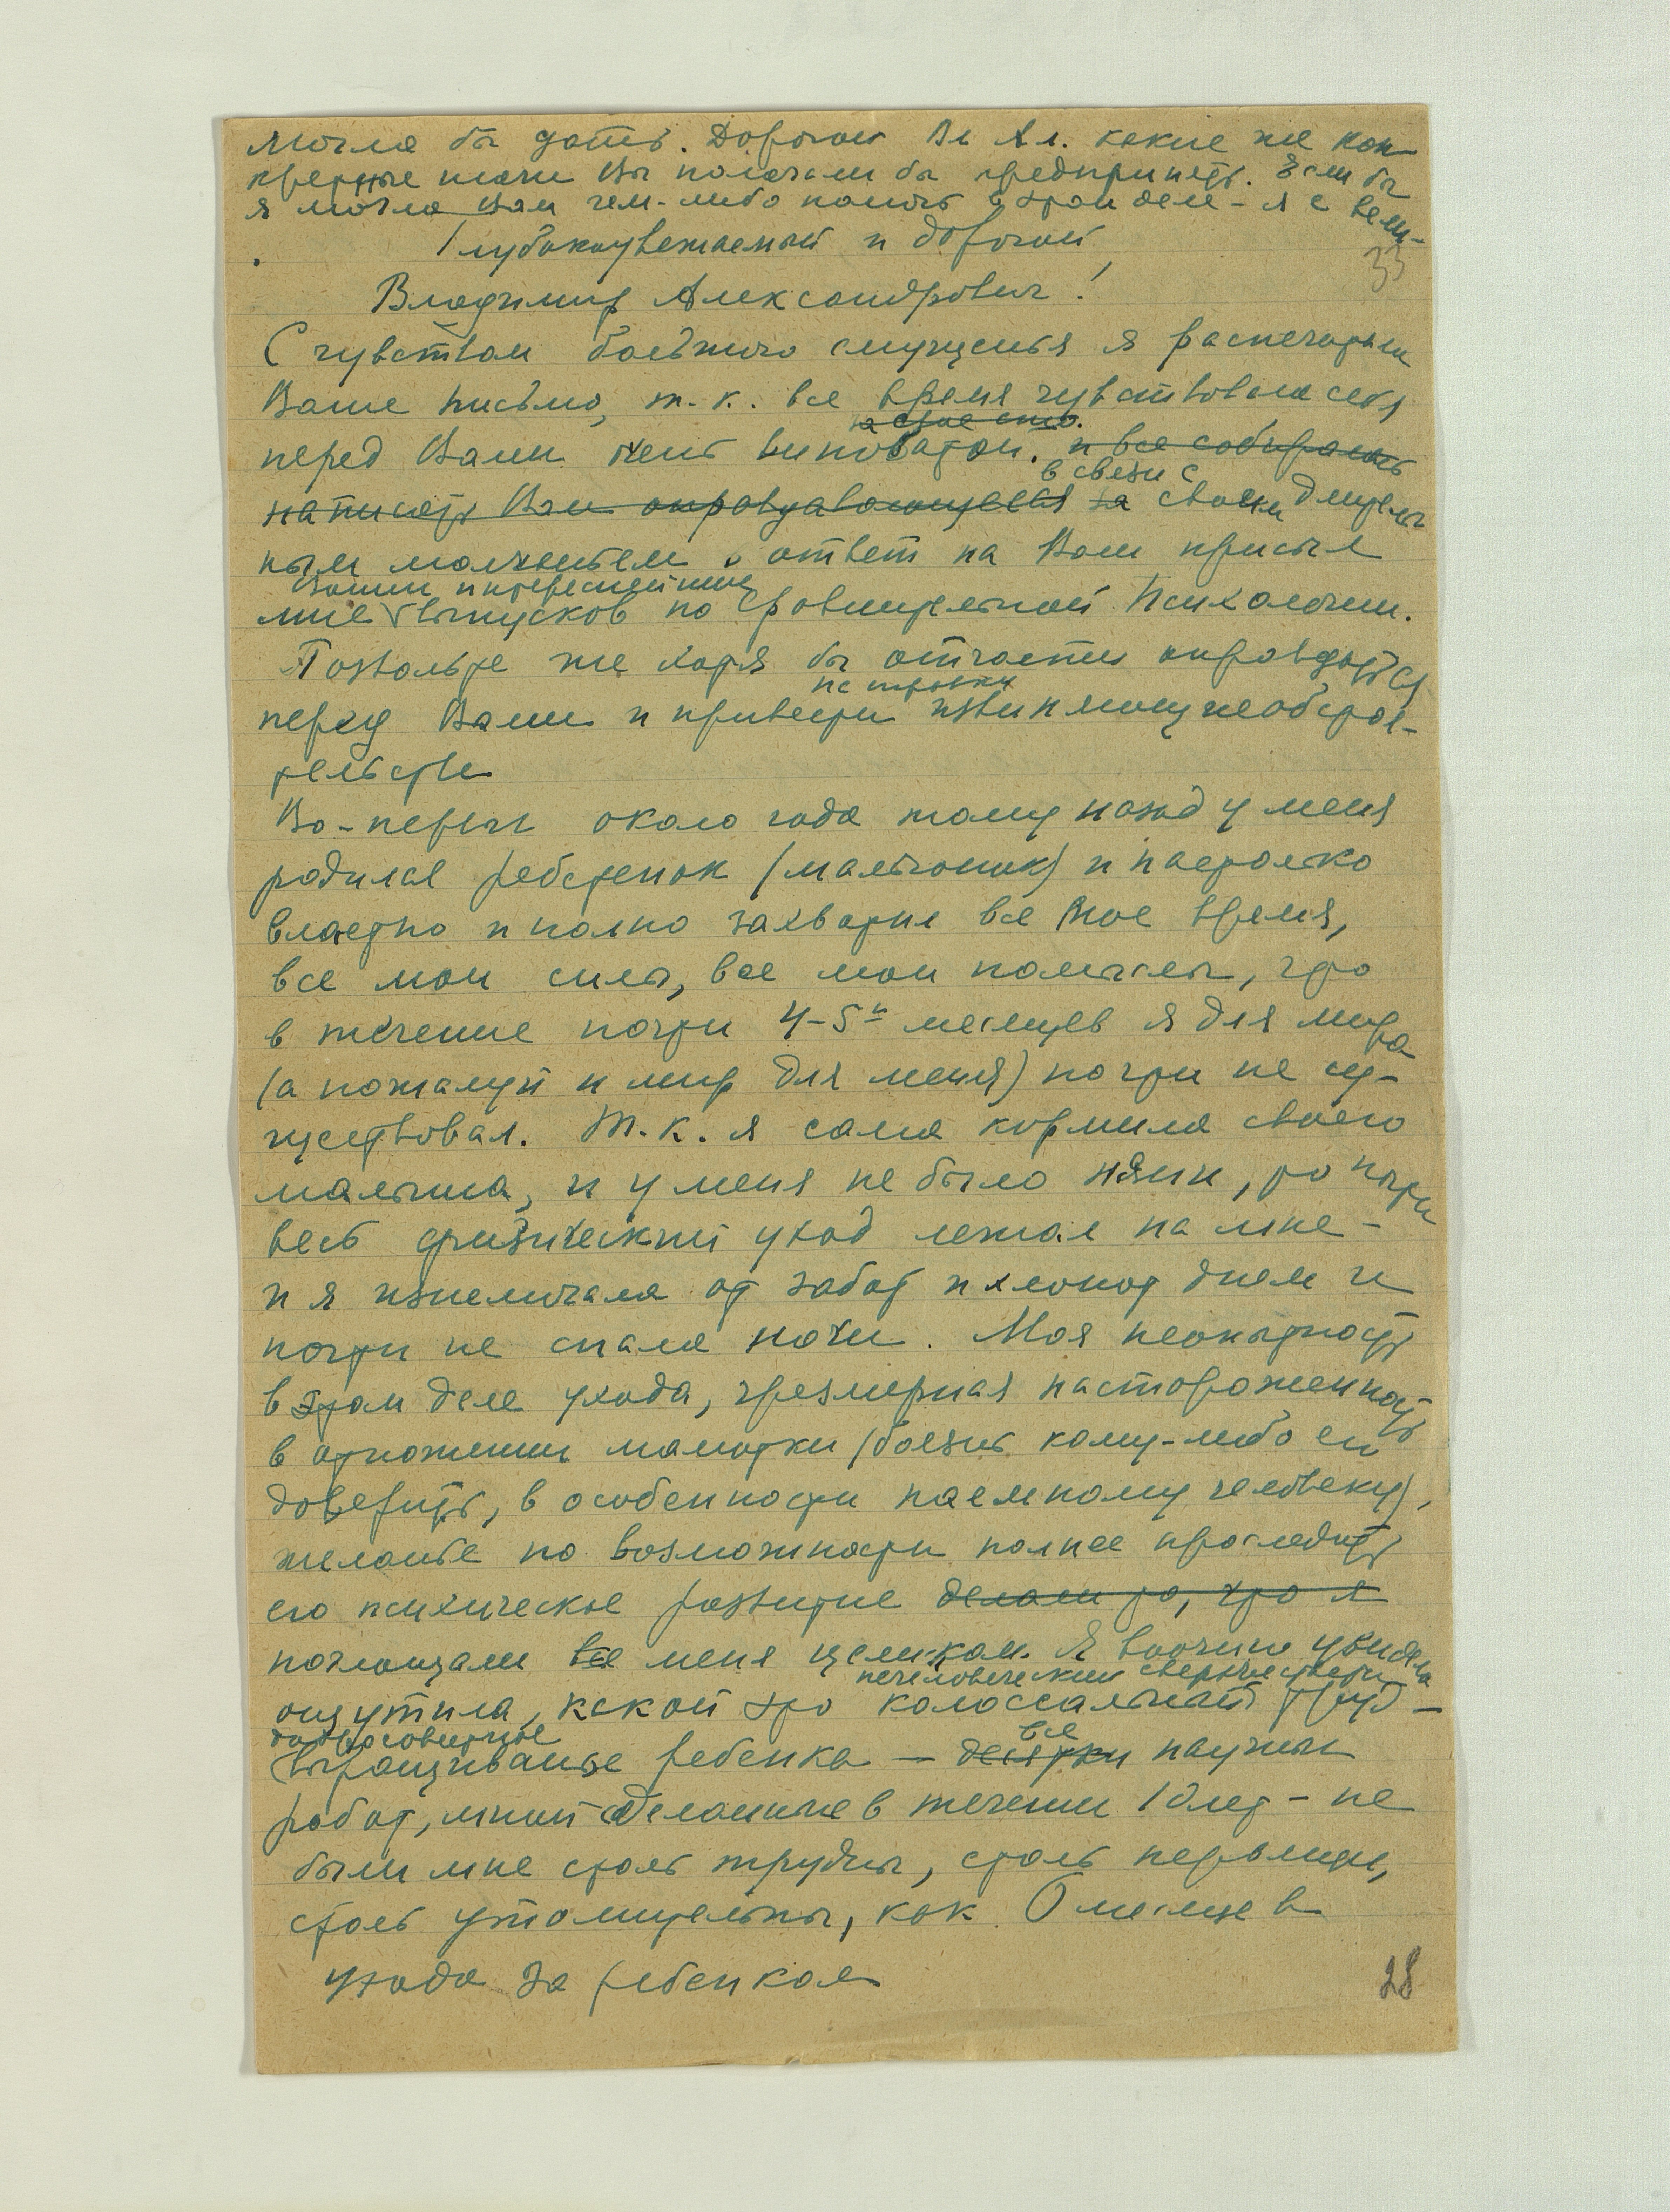 могла бы дать. Дорогой Вл Ал. какие же кон-
кретные шаги Вы полагали бы предпринять. Если бы
я могла Вам чем-либо помочь в этом деле - я с вели-
Глубокоуважаемый и дорогой
33
Владимир Александрович!
С чувством большого смущенья я распечатала
Ваше письмо, т.к. все время чувствовала себя
за свое
перед Вами виноватой. и все собиралась
в связи с
написать Вам за своим длитель
ным молчаньем в ответ на Ваш присыл
Ваших интереснейших
мне выпусков по Сравнительной Психологии.
Позвольте же хотя бы отчасти оправдаться
перед Вами и привести извиняющие обстоя-
тельства
Во-первых около года тому назад у меня
родился ребетенок (мальчишик) и настолько
властно и полно захватил все мое время,
все мои силы, все мои помыслы, что
в течение почти 4-5и месяцев я для мира
(а пожалуй и мир для меня) почти не су-
ществовал. Т.к. я сама кормила своего
малыша, и у меня не было няни, то почти
весь физический уход лежал на мне -
и я изнемогала от забот и хлопот днем и
почти не спала ночи. Моя неопытность
в этом деле ухода, чрезмерная настороженность
в отношении малютки (боязнь кому-либо его
доверить, в особенности наемному человеку),
желанье по возможности полнее проследить
его психическое развитие делали то, что я
поглощали все меня целиком. Я воочию увидела
нечеловеческий
ощутила, какой это колоссальный труд -
добросовестное
все
выращиванье ребенка — десятки научных
работ, мной сделанные в течении 10 лет - не
были мне столь трудны, столь
столь утомительны, как 6 месяцев
ухода за ребенком
28